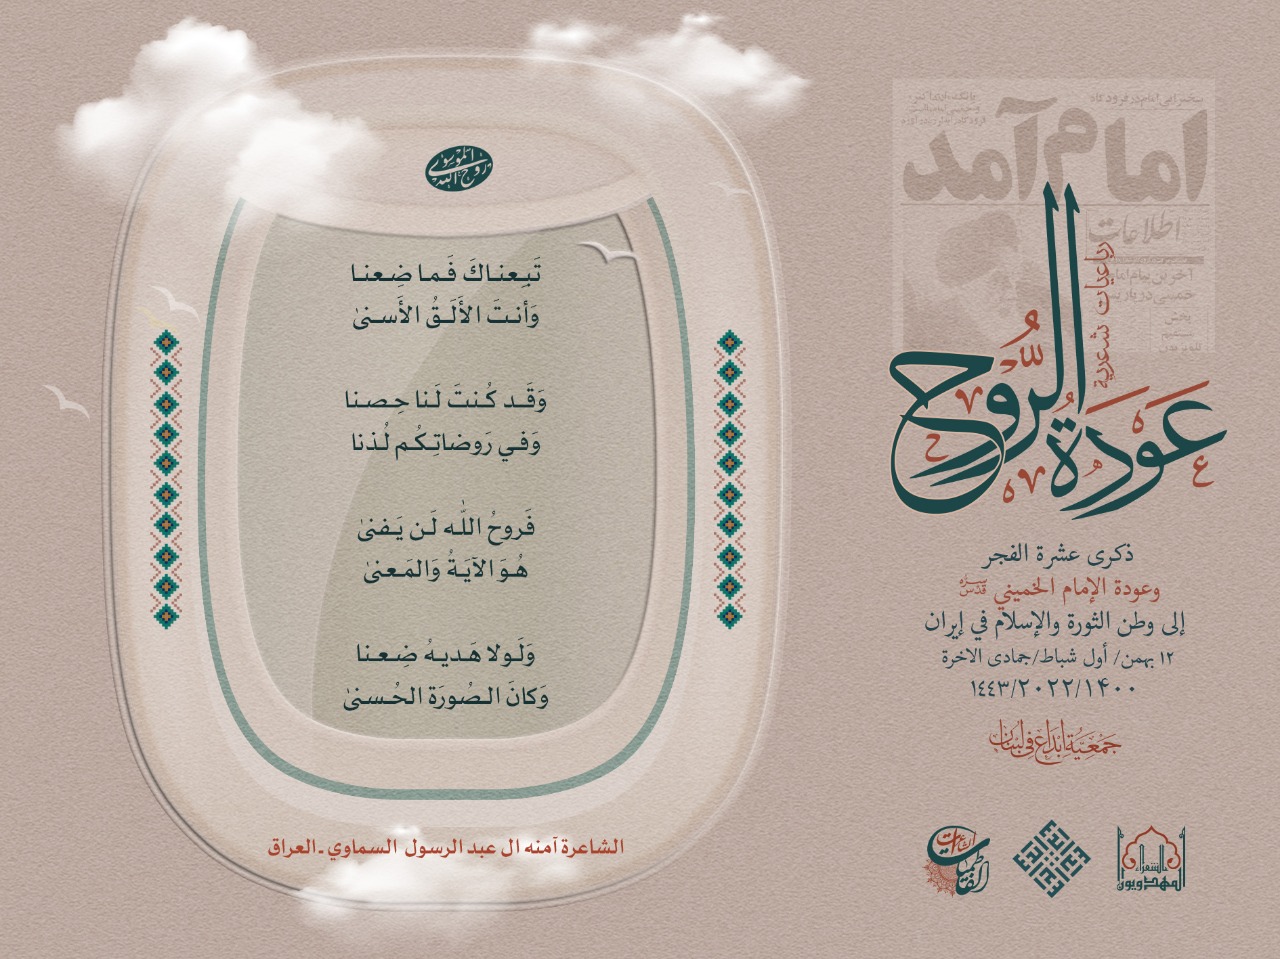 امام آمد
اطلاعات
رباعيات شعرية
عودة الرُّوح
ذكرى عشرة الفجر
وعودة الإمام الخميني قدّس سرّه
إلى وطن الثورة والإسلام في إيران
١٢ بهمن/ أول شباط/جمادى الاخرة
١٤٤٣/٢٠٢٢/١۴٠٠
جمعيّة إبداع في لبنان
الشاعرات الفاطميات
الشعراء المهدويون
روح الله الموسوي
تَبِعناكَ فَما ضِعنا
وَأنتَ الأَلَقُ الأَسنىٰ
وَقَد كُنتَ لَنا حِصنا
وَفي رَوضاتِكُم لُذنا
فَروحُ اللّٰه لَن يَفنىٰ
هُوَ الآيَةُ وَالمَعنىٰ
وَلَولا هَديهُ ضِعنا
وَكانَ الصُورَة الحُسنىٰ
الشاعرة آمنه ال عبد الرسول السماوي - العراق